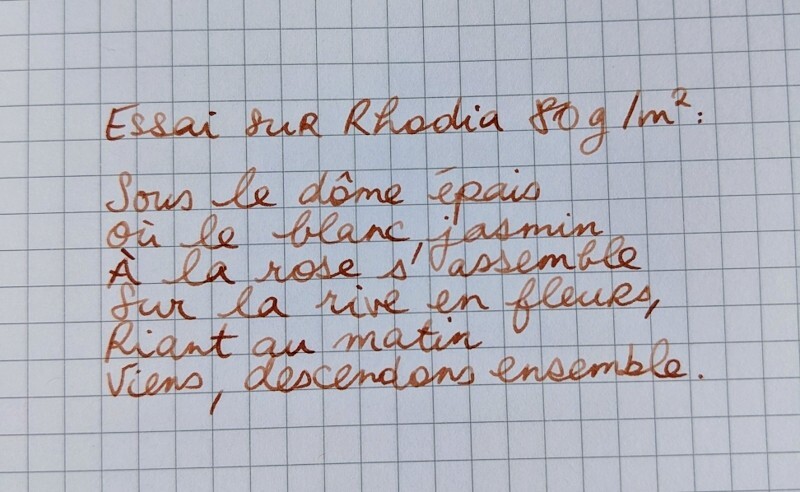 Essai sur Rhodia 80g/m²:
Sous le dôme épais
où le blanc jasmin
À la rose s'assemble
Sur la rive en fleurs,
Riant au matin
Viens, descendons ensemble.